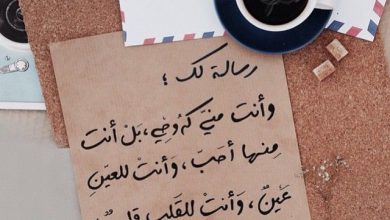 رسالة لك ؛
وأنت منيّ كَروُحِي، بَل أنت
مِنها أحَبّ، وَأنتْ للعَينِ
عَينٌ، وَأنتْ للقَلبِ